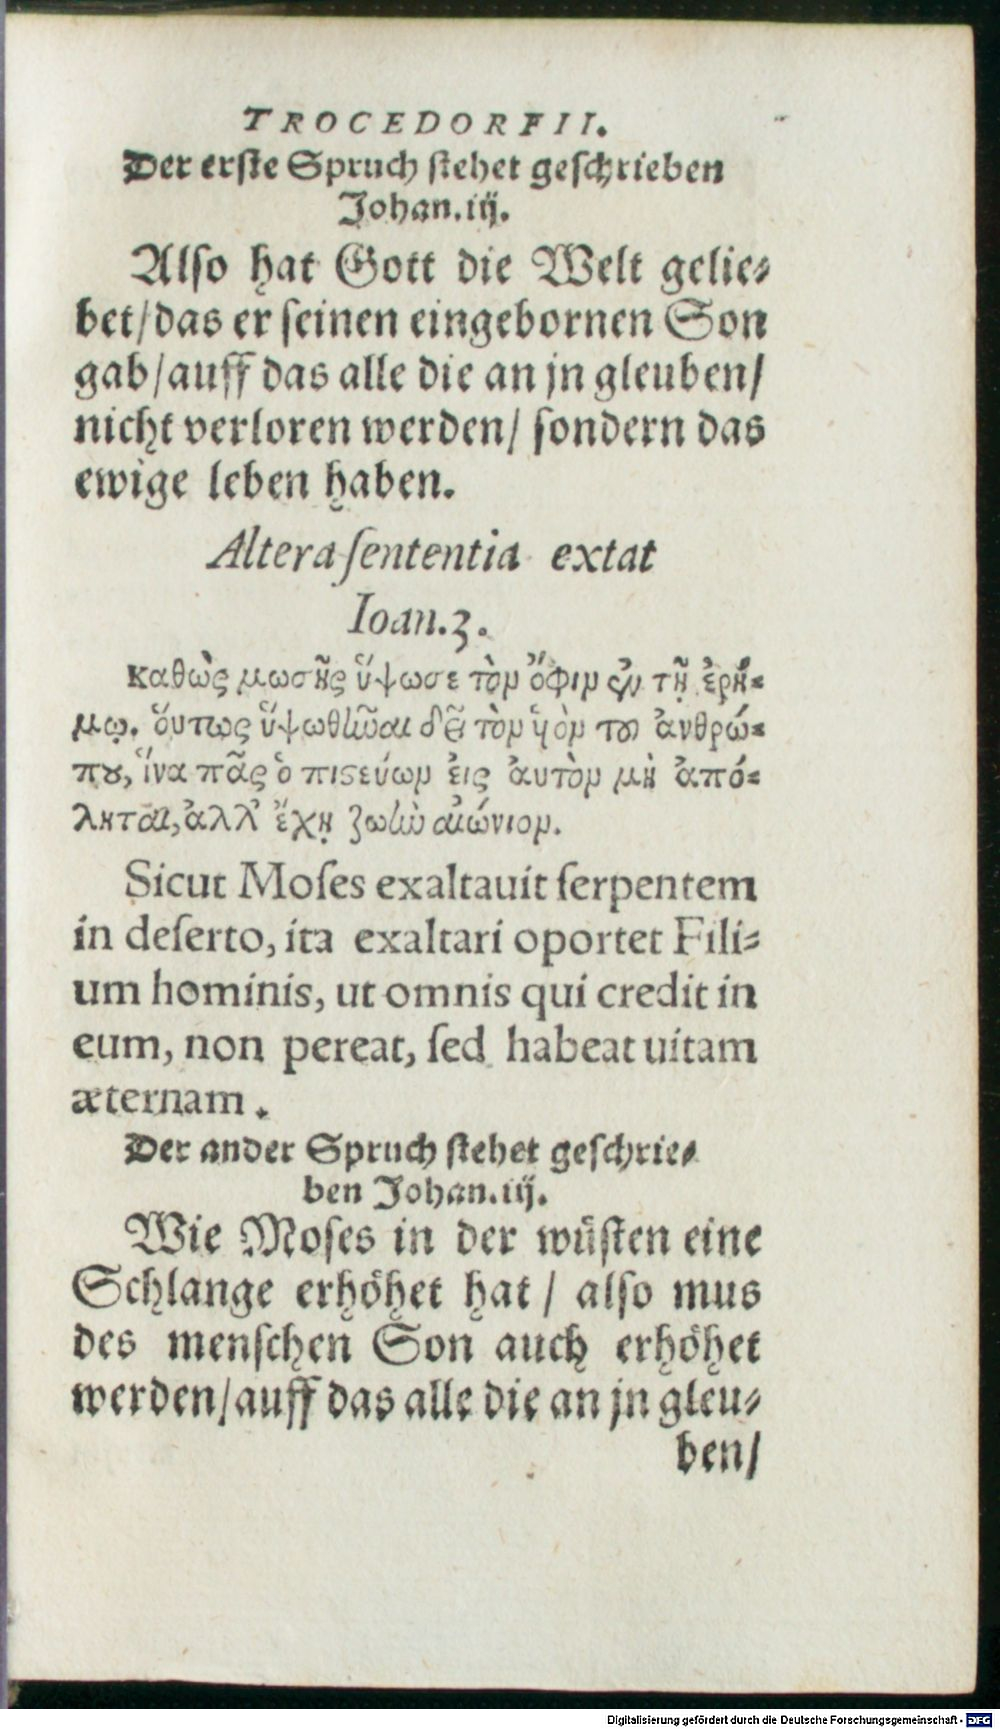 TROCEDORFII.
Der erste Spruch stehet geschrieben
Johan.iij.
Also hat Gott die Welt gelie⸗
bet/das er seinen eingebornen Son
gab/auff das alle die an jn gleuben/
nicht verloren werden/ sondern das
ewige leben haben.
Altera sententia extat
Ioan.3.
Καθὼς μωσῆς ὕψωσε τὸν ὄφιν ἐν τῇ ἐρή⸗
μῳ. ὅυτως ὑψωθῆναι δεῖ τὸν ὑὸν τοῦ ἀνθρώ⸗
που, ἵνα πᾶς ὁ πιστεύων ἐις ἀυτὸν μὴ ἀπό⸗
ληται, ἀλλ᾽ ἔχῃ ζωὴν αἰώνιον.
Sicut Moſes exaltauit ſerpentem
in deſerto, ita exaltari oportet Fili⸗
um hominis, ut omnis qui credit in
eum, non pereat, ſed habeat uitam
æternam.
Der ander Spruch stehet geschrie⸗
ben Johan.iij.
Wie Moses in der wüsten eine
Schlange erhöhet hat / also mus
des menschen Son auch erhöhet
werden/auff das alle die an jn gleu⸗
ben/
Digitalisierung gefördert durch die Deutsche Forschungsgemeinschaft - DFG